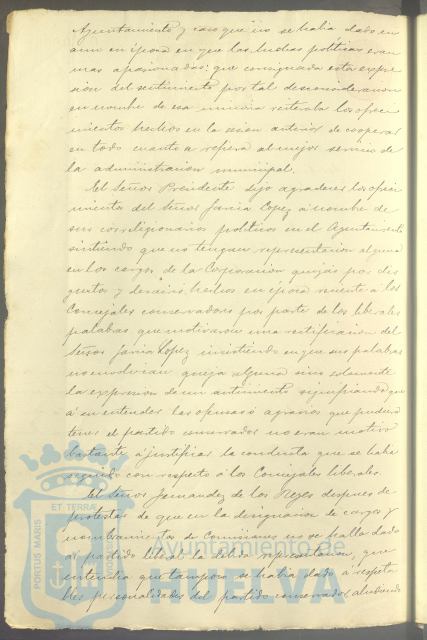 Ayuntamiento y caso que no se habia dado en
aun en época en que las luchas políticas eran
mas apasionadas: que consignada esta expre
sion del sentimiento por tal desconsideracion
en nombre de esa minoria reiteraba los ofreci
mientos hechos en la sesion anterior de cooperar
en todo cuanto a refiera al mejor servicio de
la administracion municipal.
El Señor Presidente dijo agradecer los ofreci
mientos del Señor Garcia Lopez á nombre de
sus correligionarios políticos en el Ayuntamiento
sintiendo que no tengan representacion alguna
en los cargos de la Corporacion quizás por dis
gustos y hechos en época reciente á los
Concejales conservadores por parte de los liberales
palabras que motivaron una rectificacion del
Señor Garcia Lopez insistiendo en que sus palabras
no envolvian queja alguna sino solamente
la expresion de un sentimiento significando que
á su entender las ofensas ó agravios que pudiera
tener el partido conservador no eran motivo
bastante á justificar la conducta que se habia
seguido con respecto á los Concejales liberales.
El Señor Fernandez de los Reyes despues de
protestar de que en la designacion de cargos y
nombramientos de Comisiones no se halla dado
al partido liberal la debida representacion, que
entendia que tampoco se habia dado á respeta
bles personalidades del partido conservador aludiendo
PORTUS MARIS ET TERRAE CUSTODIA
Ayuntamiento de
HUELVA